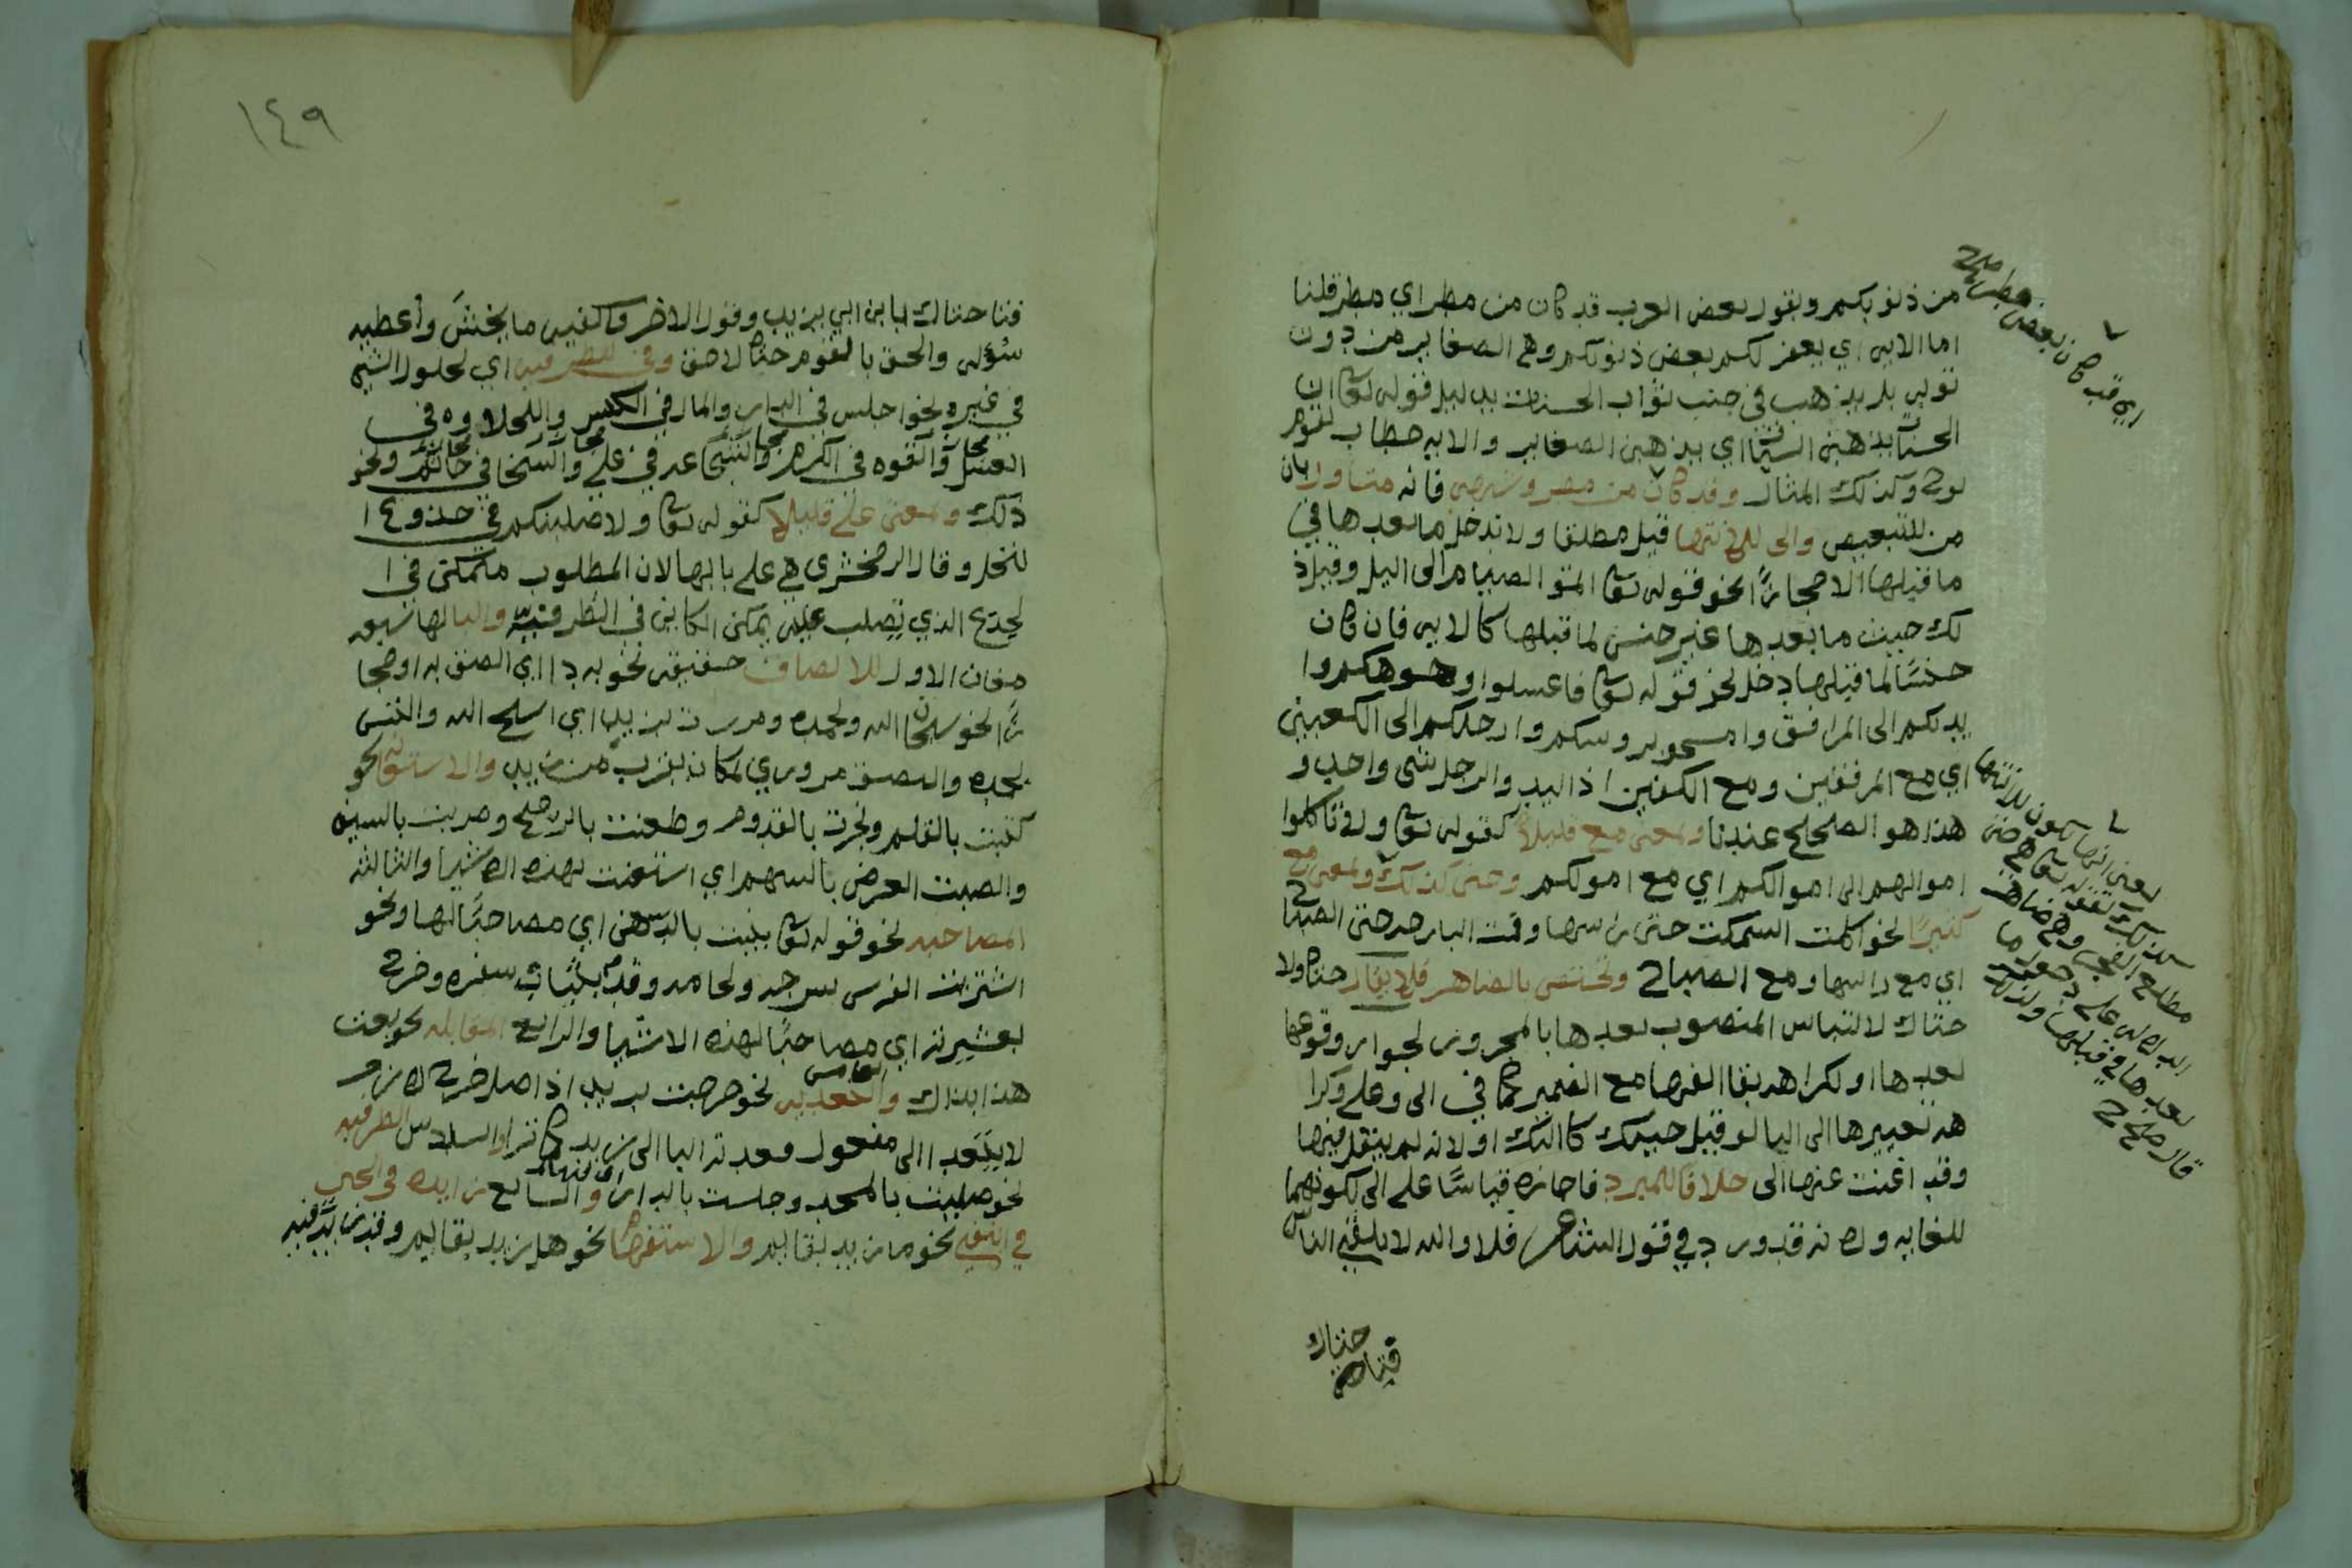 من ذنوبكم وبقول بعض العرب قد كان من مطر اي مطر قلنا
اما الايه اي يغفر لكم بعض ذنوبكم وهي الصغاير من دون
توبه بل يذهب في جنب ثواب الحسنات بدليل قوله تعالى ان
الحسنات يذهبن السيئات اي يذهبن الصغاير والايه خطاب لقوم
نوح وكذلك المثال وقد كان من مطر وشبهه فانه متاول بان
من للتبعيض والى للانتها قيل مطلقا ولا تدخل ما بعدها في
ما قبلها الا مجازًا نحو قوله تعالى اتموا الصيام الى اليل وقيل ذ
لك حيث ما بعدها غير جنس لما قبلها كالايه فان كان
جنسًا لما قبلها دخل نحو قوله تعالى فاغسلوا وجوهكم وا
يديكم الى المرافق وامسحوا بروسكم وارجلكم الى الكعبين
اي مع المرفقين ومع الكعبين اذ اليد والرجل شي واحد و
هذا هو الصحيح عندنا وبمعنى مع قليلاً كقوله تعالى ولا تاكلوا
اموالهم الى اموالكم اي مع اموالكم وحتى كذلك وبمعنى مع
كثيرًا نحو اكلت السمكت حتى راسها ونمت البارحه حتى الصباح
اي مع راسها ومع الصباح وتختص بالضاهر فلا يقال حتاه ولا
حتاك لالتباس المنصوب بعدها بالمجرور لجواز وقوعها
بعدها او لكراهه بقا الفها مع الضمير كما في الى وعلى وكرا
هه تغييرها الى اليا لو قيل حتيك كاليك او لانه لم ينقل فيها
وقد اغنت عنها الى خلافا للمبرد فاجازه قياسًا على الى لكونهما
للغايه ولانه قد ورد في قول الشاعر فلا والله لا يلفي اناس
فتى حتاك
اي قد كان بعض مطر صح
يعني انها تكون للانتها
كذلك كقوله تعالى هي حتى
مطلع الفجر
بعدها في قبلها
١٤٩
فتا حتاك يا بن ابي يزيد وقول الاخر واكفيه ما يخشى واعطيه
سؤله والحق بالقوم حتاه لاحق وفي للظرفيه اي لحلول الشي
في غيره نحو اجلس في الدار والمال في الكيس والحلاوه في
العسل والقوه في الكرم والشجاعه في علي والسخا في حاتم ونحو
ذلك وبمعنى على قليلا كقوله تعالى ولاصلبنكم في جذوع ا
لنخل وقال الزمخشري هي على بابها لان المطلوب متمكن في ا
لجذع الذي تصلب عليه تمكن الكاين في الظرفيه والبا لها سبعه
معان الاول للالصاق حقيقه نحو به دا اي الصق به او مجا
زًا نحو سبحان الله وبحمده ومررت بزيد اي اسبح الله والتبس
بحمده والتصق مروري بمكان يقرب من زيد والاستعانه نحو
كتبت بالقلم ونجرت بالقدوم وطعنت بالرمح وضربت بالسيف
واصبت الغرض بالسهم اي استعنت بهذه الاشيا والثالثه
المصاحبه نحو قوله تعالى تنبت بالدهن اي مصاحبًا لها ونحو
اشتريت الفرس بسرجه ولجامه وقدم بثياب سفره وخرج
بعشيرته اي مصاحبًا لهذه الاشيا والرابع المقابله نحو بعت
هذا بذاك والخامس التعديه نحو خرجت بزيد اذ اصل خرج لازم
لا يتعدا الى مفعول فعدته البا الى زيد كما ترا والسادس الظرفيه
نحو صليت بالمسجد وجلست بالدار اي فيهما والسابع زايده في الخبر
في النفي نحو ما زيد بقايم والاستفهام نحو هل زيد بقايم وقد تزيد فيه